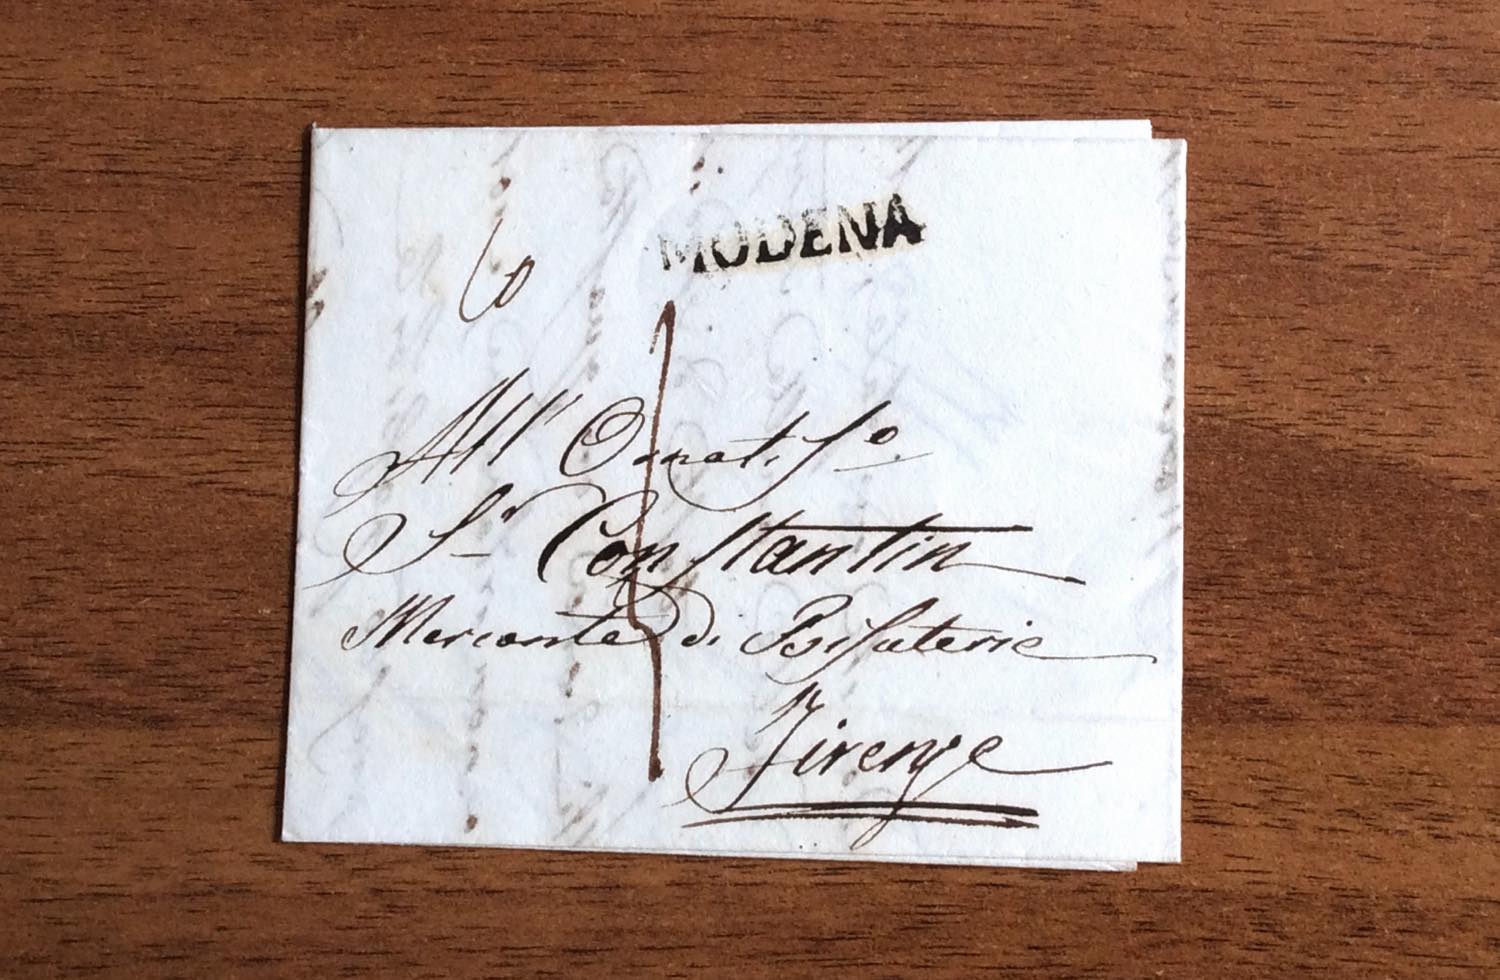 MODENA
All' Ornatis.º
S.r Constantin
Mercante di Bisuterie
Firenze